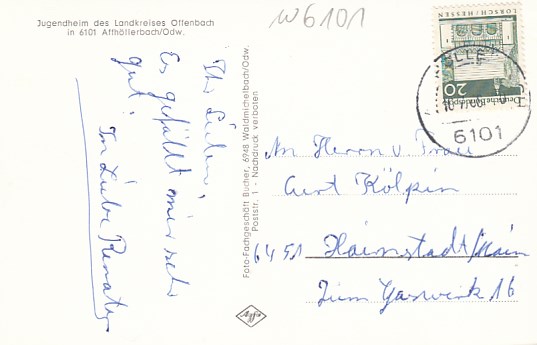 Jugendheim des Landkreises Offenbach
in 6101 Affhöllerbach/Odw.
W6101
Ihr Lieben,
Es gefällt mir sehr
gut!
In Liebe Renate
Foto-Fachgeschäft Bucher, 6948 Waldmichelbach/Odw.
Poststr. 1 - Nachdruck verboten
Agfa
LORSCH/HESSEN
20
Deutsche Bundespost
6101
An Herrn u. Frau
Curt Kölpin
6451 Hainstadt/Main
Zum Gaswerk 16